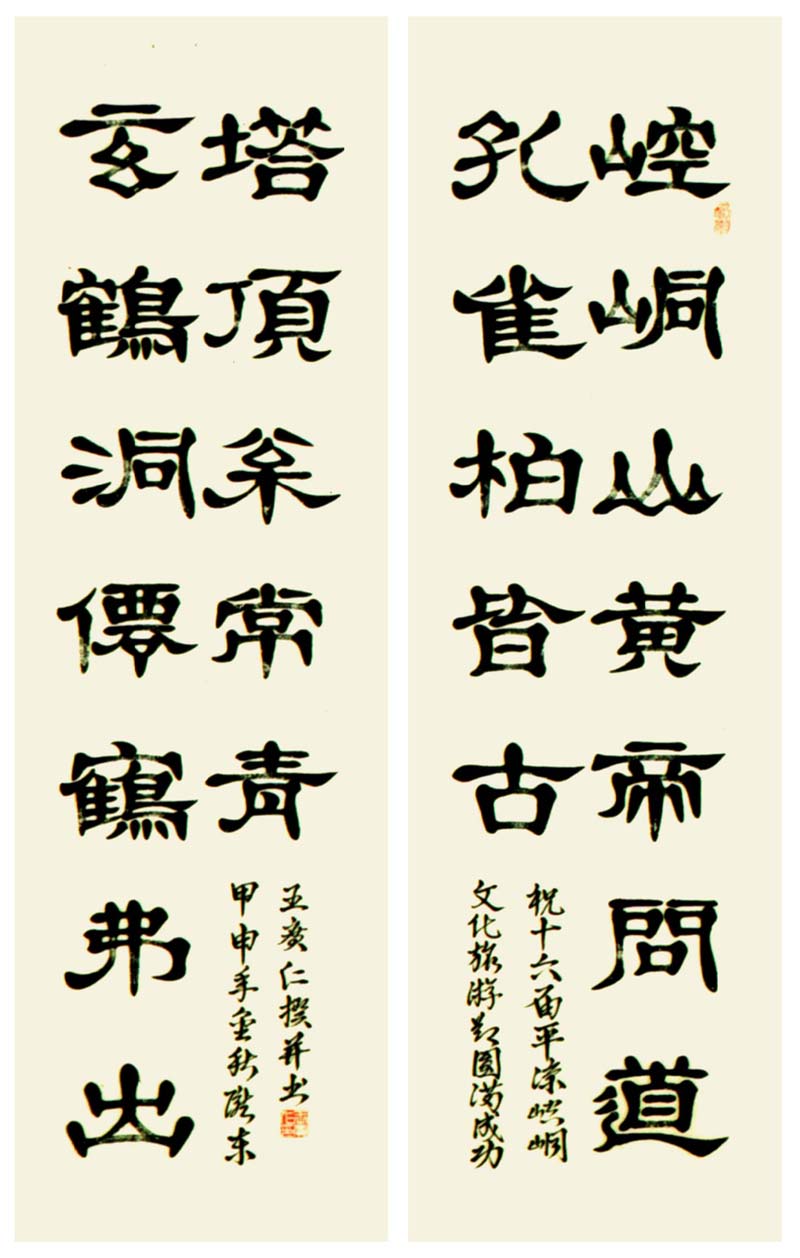 崆峒山黄帝問道
孔雀柏皆古
祝十六届平凉崆峒
文化旅游節圓满成功
玄鶴洞僊鶴弗出
塔頂枀常青
甲申年金秋陇东
王廣仁撰并书